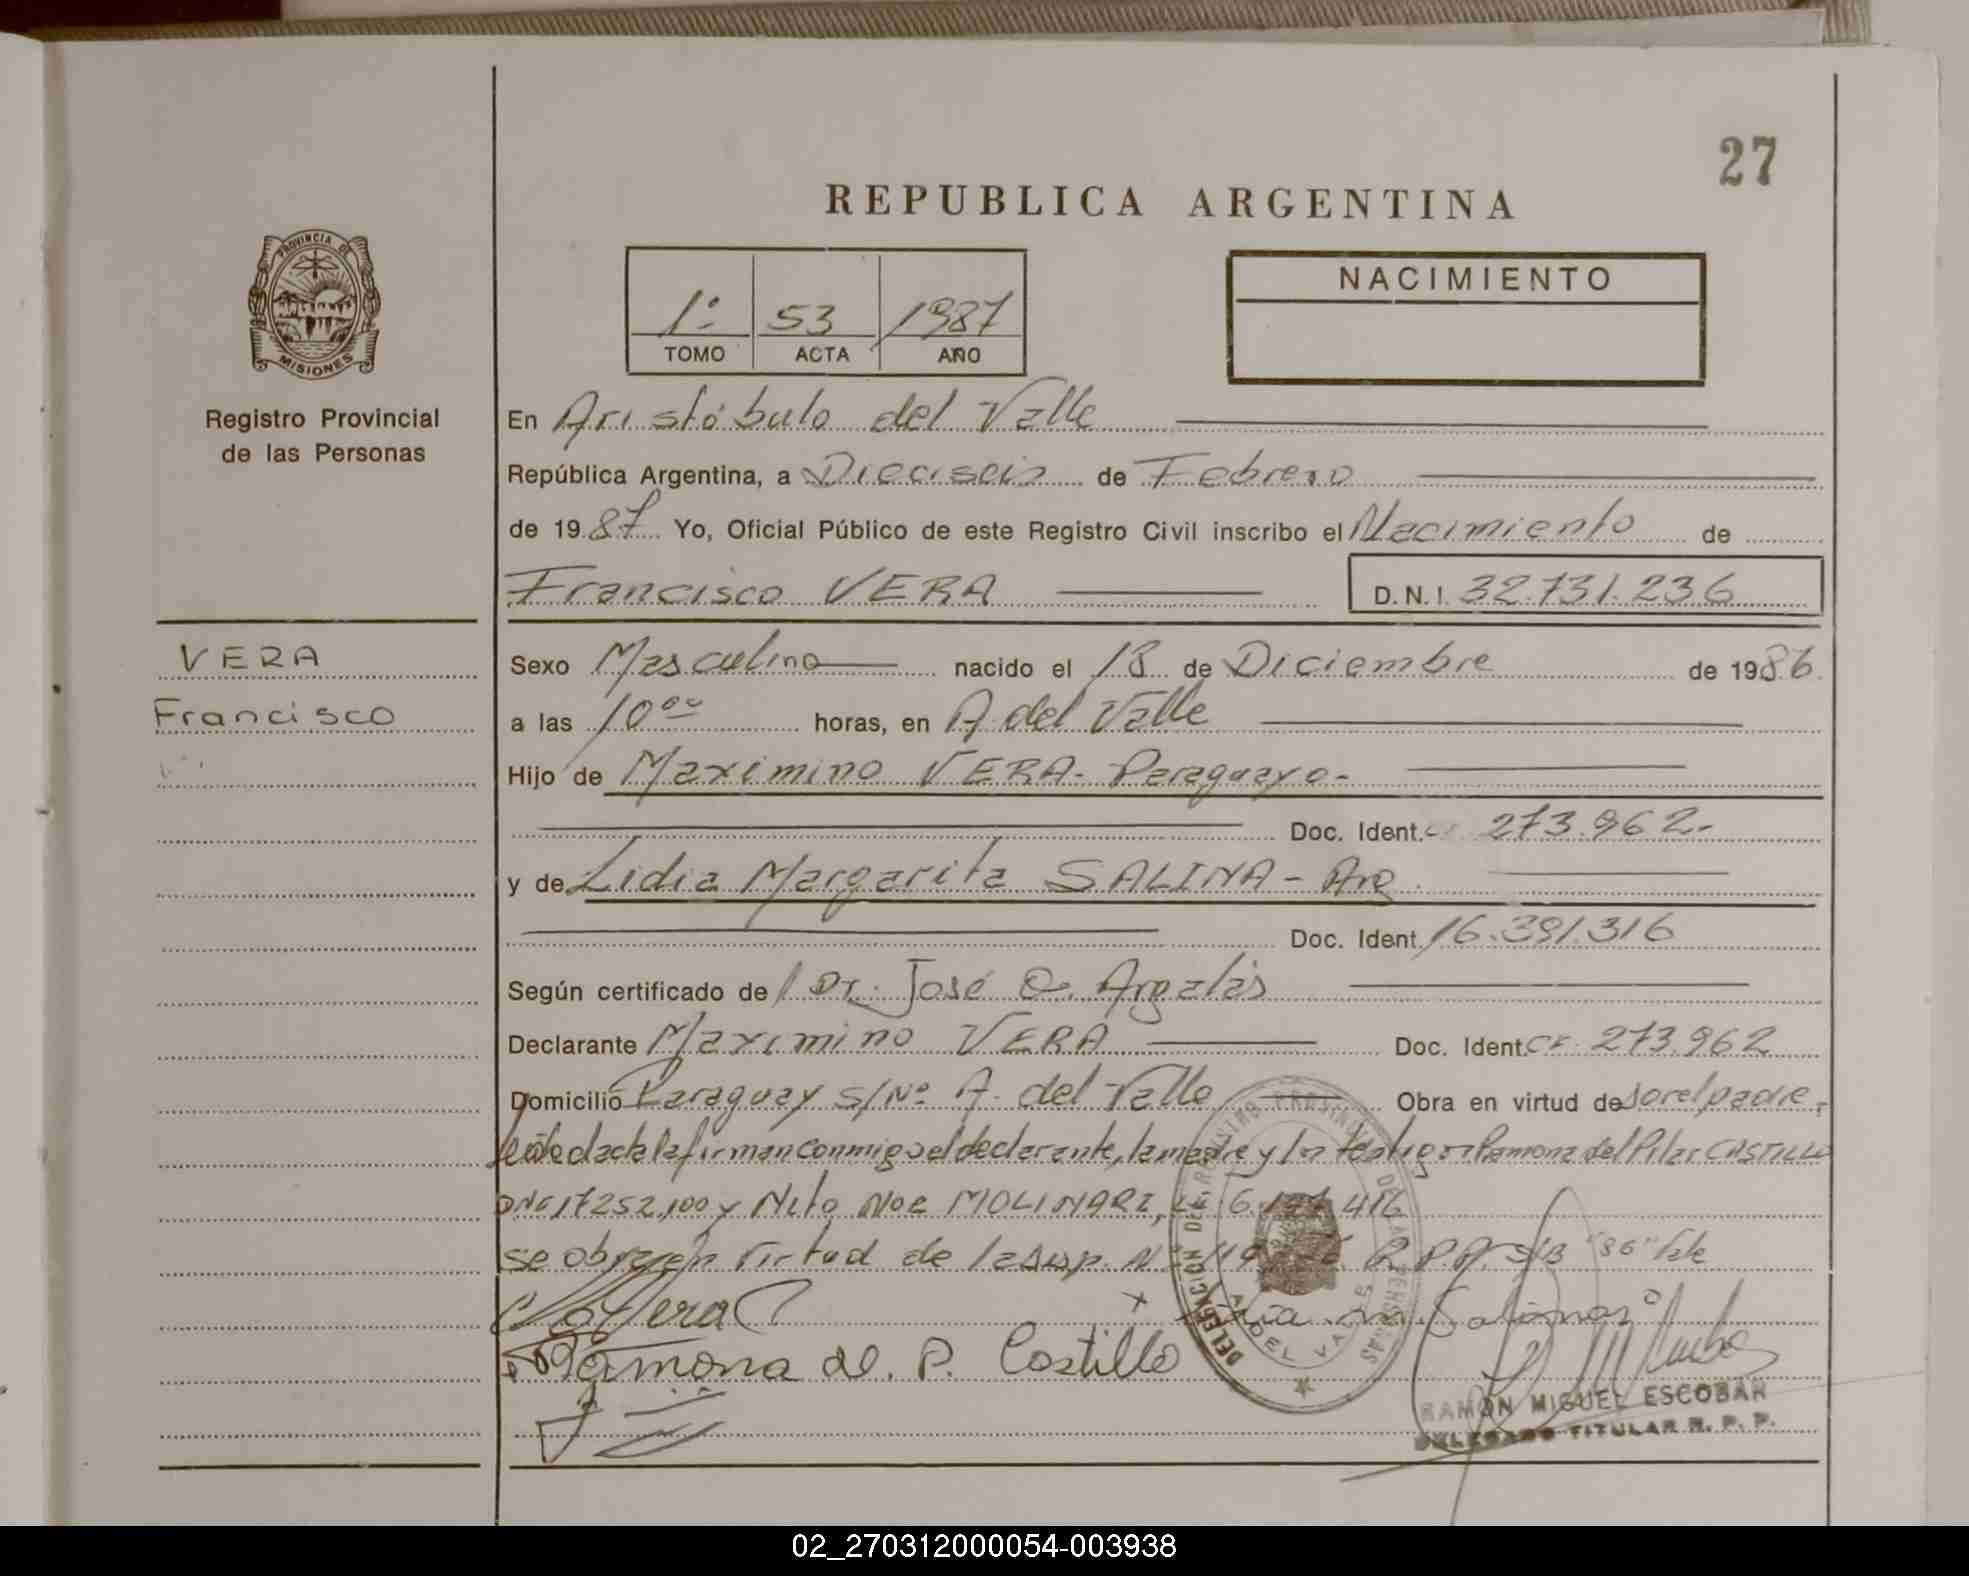 27
REPUBLICA ARGENTINA
PROVINCIA DE
MISIONES
Registro Provincial
de las Personas
1º 53 1987
TOMO ACTA AÑO
NACIMIENTO
En Aristóbulo del Valle
República Argentina, a Dieciseis de Febrero
de 1987 Yo, Oficial Público de este Registro Civil inscribo el Nacimiento de
Francisco VERA D.N.I. 32.731.236
VERA
Francisco
Sexo Masculino nacido el 18 de Diciembre de 1986
a las 10 ºº horas, en A. del Valle
Hijo de Maximino VERA - Paraguayo -
Doc. Ident. 273.962-
y de Lidia Margarita SALINA - Arg.
Doc. Ident. 16.391.316
Según certificado de Dr. José O.
Declarante Maximino VERA Doc. Ident. 273.962
Domicilio Paraguay s/Nº A. del Valle Obra en virtud de ser el padre,
leída el acta la firman conmigo el declarante, la madre y los testigos Ramona del Pilar CASTILLO
17.252.100 y Noe MOLINARI,
se obra en virtud de
Ramona del. P. Castillo
RAMON MIGUEL ESCOBAR
DELEGADO TITULAR R. P. P.
02_270312000054-003938